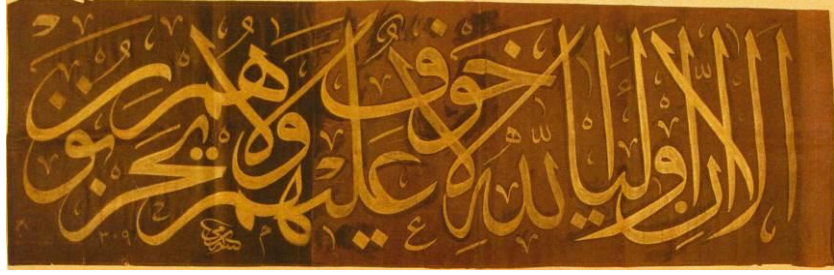 الا ان اولياء الله لا خوف عليهم ولا هم يحزنون